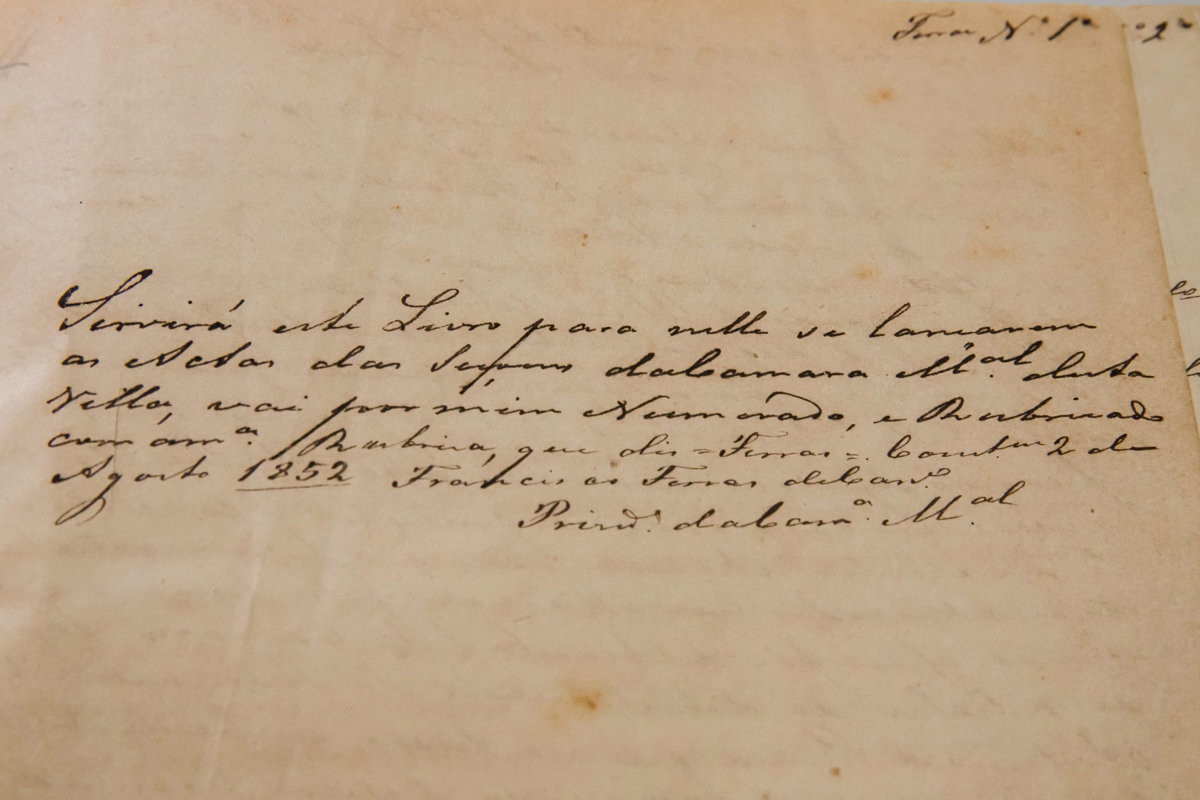 Ferraz N.º 1º
Servirá este Livro para nelle se lançarem
as Actas das Seçoens daCamara M.al desta
Villa, vai por mim Numerado, e Rubricado
com am.a Rubrica, que dis = Ferras = 2 de
Agosto 1852 Francisco Ferras de
dacam.a M.al